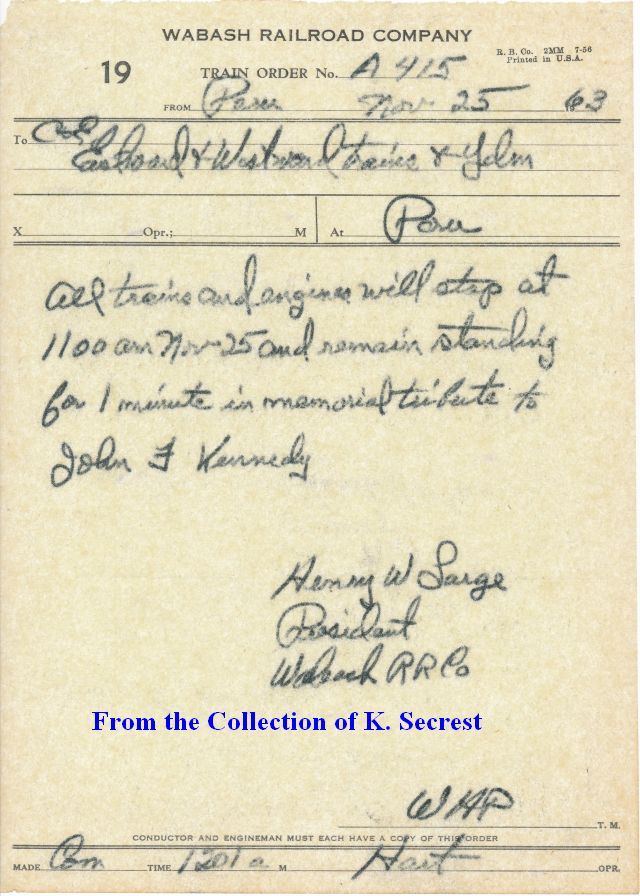 WABASH RAILROAD COMPANY
R. B. Co. 2MM 7-56
Printed in U.S.A.
19 TRAIN ORDER No. A 415
FROM Peru Nov 25 1963
To C&E
Eastward & Westward trains & Ydm
X Opr.; M At Peru
All trains and engines will stop at
1100 am Nov 25 and remain standing
for 1 minute in memorial tribute to
John F Kennedy
Henry W Large
President
Wabash RR Co
From the Collection of K. Secrest
WHP T. M.
CONDUCTOR AND ENGINEMAN MUST EACH HAVE A COPY OF THIS ORDER
MADE Com TIME 1201 a M Hart OPR.